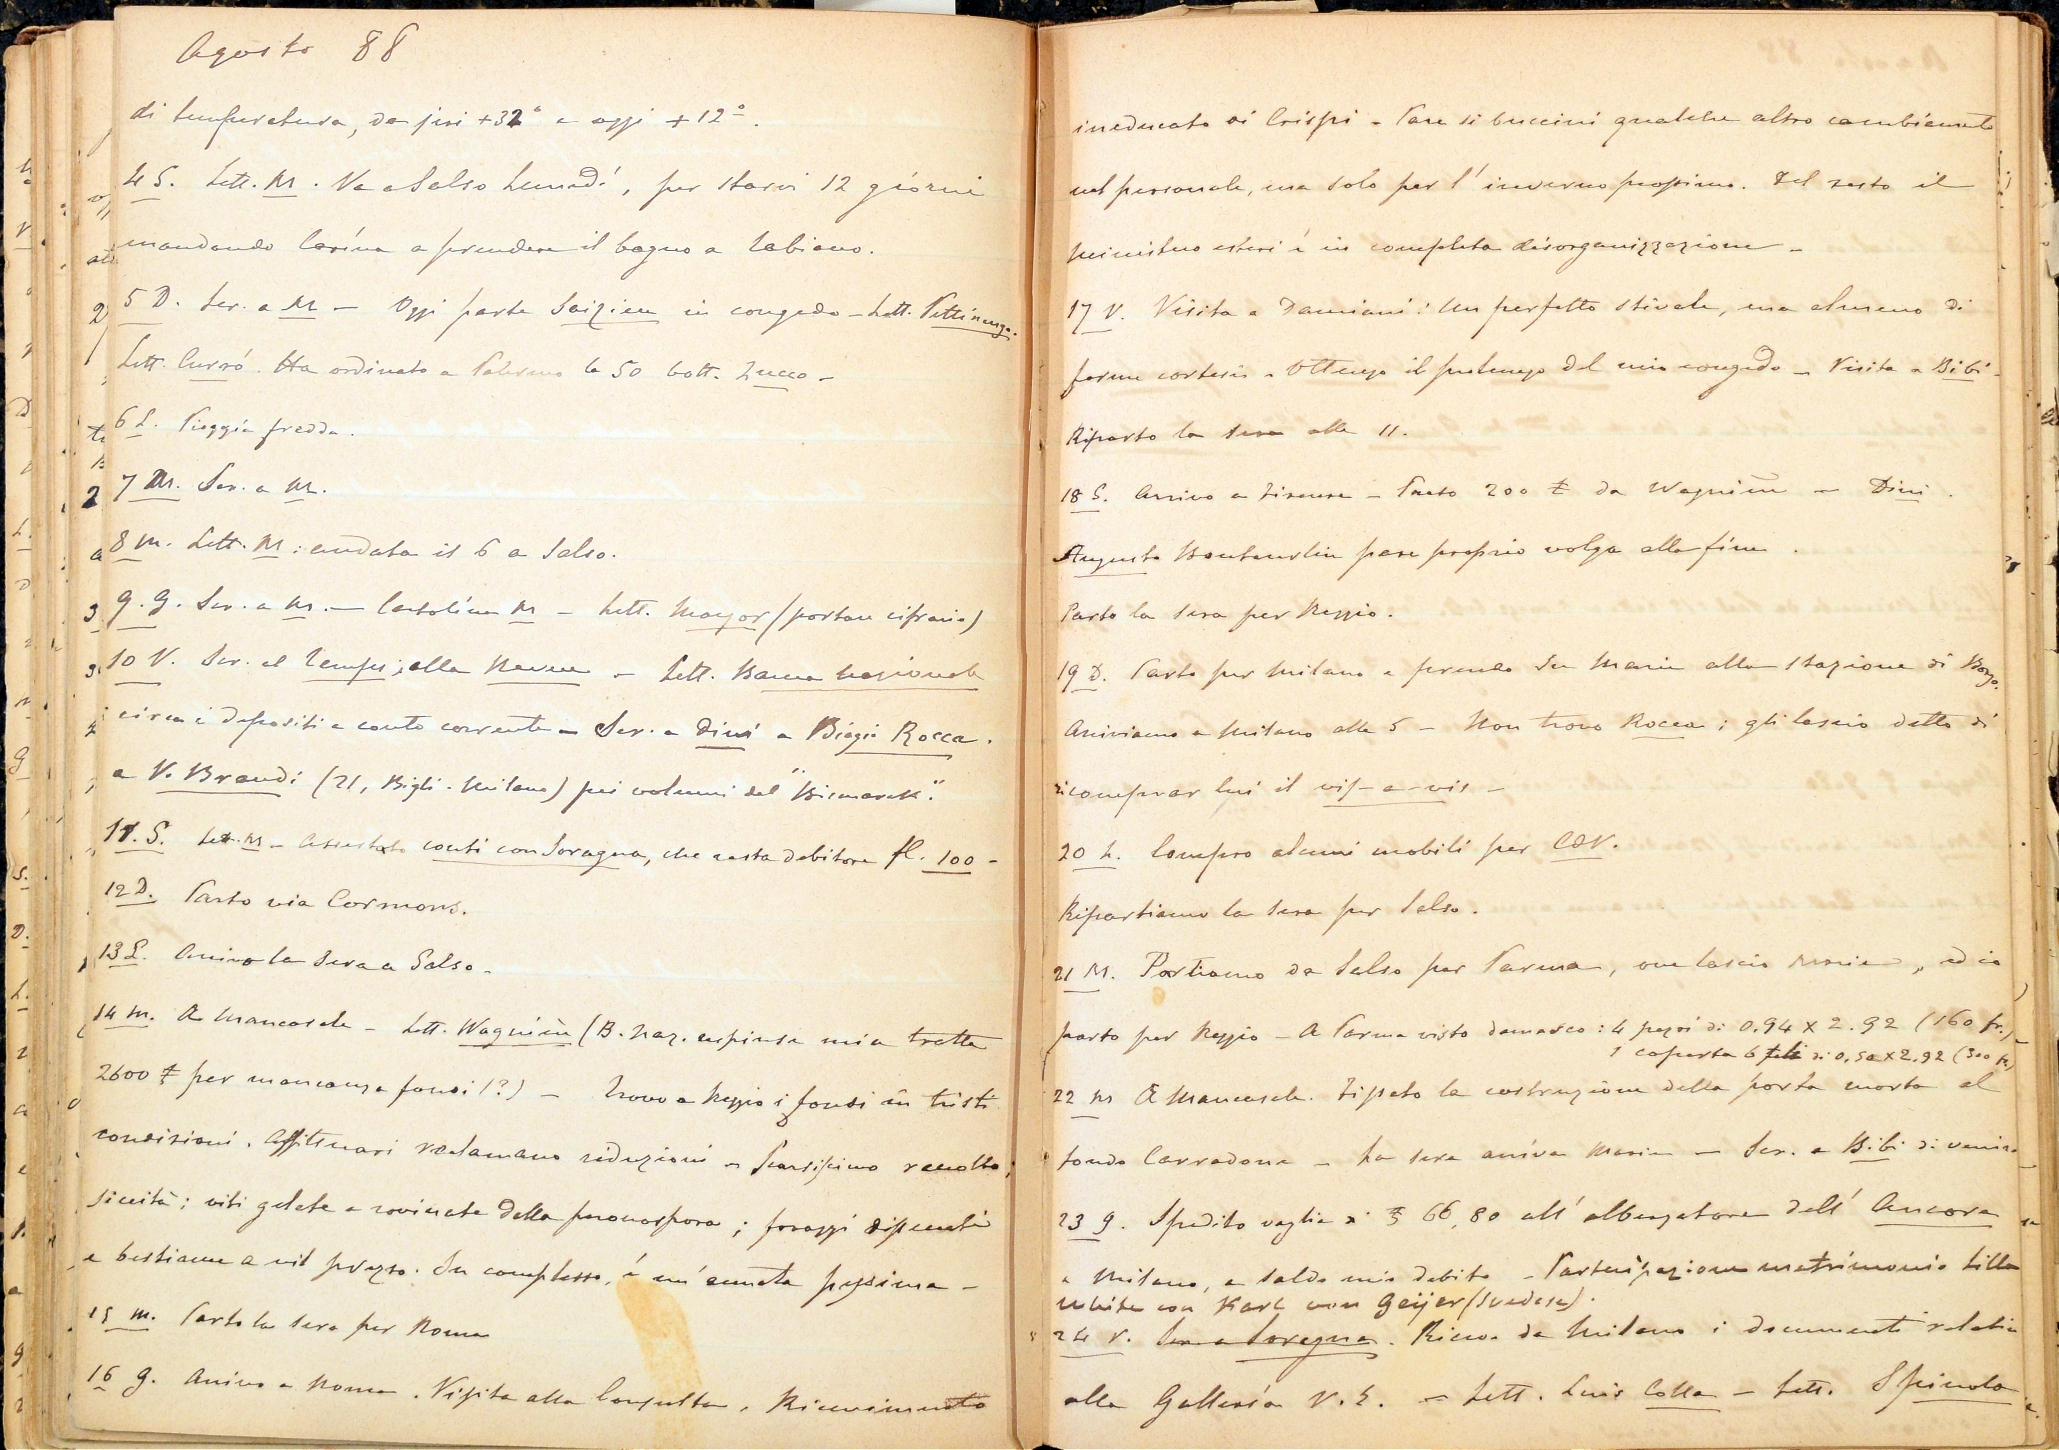 Agosto 88
di temperatura, da jeri +32° a oggi +12°.
4 S. Lett. M. Va a Salso Lunedí, per starvi 12 giorni
mandando Carína a prendere il bagno a Tabiano.
5 D. Scr. a M — Oggi parte in congedo — Lett. Pettinengo.
Lett. Currò. Ha ordinato a Palermo le 50 bott. Zucco —
6 L. Pioggia fredda.
7 M. Scr. a M.
8 M. Lett. M: andata il 6 a Salso.
9. G. Scr. a M. — Cartolina M — Lett. Mayor (portar cifrario)
10 V. Scr. al Temps; alla Revue — Lett. Banca nazionale
circa i depositi a conto corrente — Scr. a Dini a Biagio Rocca.
a V. Brandi (21, Bigli - Milano) pei volumi del "Bismarck".
11. S. Lett. M — Assestato conti con Soragna, che resta debitore fl. 100 —
12 D. Parto via Cormons.
13 L. Arrivo la sera a Salso.
14 M. A Mancasale — Lett. Wagnière (B. Naz. respinse mia tratta
2600 £ per mancanza fondi (?) — Trovo a Reggio i fondi in tristi
condizioni. Affittuari reclamano riduzioni — Scarsissimo raccolto;
siccità; viti gelate e rovinate dalla peronospora; foraggi
e bestiame a vil prezzo. In complesso, è un'annata pessima —
15 M. Parto la sera per Roma
16 G. Arrivo a Roma. Visita alla Consulta. Ricevimento
ineducato di Crispi — Pare si buccini qualche altro cambiamento
nel personale, ma solo per l'inverno prossimo. Del resto il
ministero esteri è in completa disorganizzazione —
17 V. Visita a Damiani: Un perfetto stivale, ma almeno di
forme cortesi — Ottengo il prolungo del mio congedo — Visita a Bibi —
Riparto la sera alle 11.
18 S. Arrivo a Firenze — Preso 200 £ da Wagnière — Dini.
Augusto Boutourlin pare proprio volga alla fine.
Parto la sera per Reggio.
19 D. Parto per Milano e prendo Maria alla stazione di Borgo.
Arriviamo a Milano alle 5 — Non trovo Rocca; gli lascio detto di
ricomprar lui il vis-a-vis —
20 L. Compro alcuni mobili per CDV.
Ripartiamo la sera per Salso.
21 M. Partiamo da Salso per Parma, ove lascio Maria, ed io
parto per Reggio — A Parma visto damasco: 4 pezzi di 0.94 x 2.92 (160 fr.)
1 coperta 6 teli di 0.50 x 2.92 (300 fr)
22 M A Mancasale. Fissato la costruzione della porta morta al
fondo Corradona — La sera arriva Maria — Scr. a Bibi di venire
23 G. Spedito vaglia di £ 66,80 all'albergatore dell'Ancora
a Milano, a saldo mio debito — Partecipazione matrimonio Lilla
White con Karl von Geijer (Svedese).
24 V. Scr. a Soragna. Ricevo da Milano i documenti relativi
alla Galleria V.E. — Lett. Luis Colla — Lett. Spinola